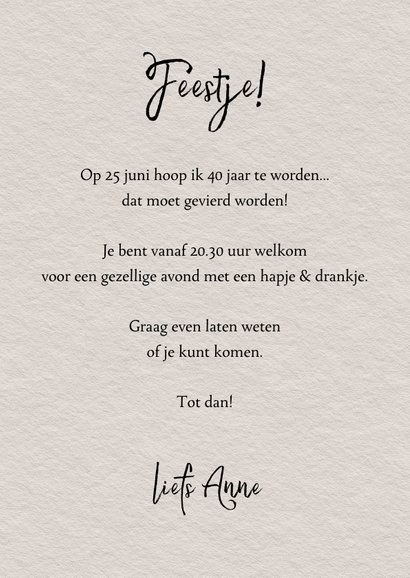 Feestje!
Op 25 juni hoop ik 40 jaar te worden...
dat moet gevierd worden!
Je bent vanaf 20.30 uur welkom
voor een gezellige avond met een hapje & drankje.
Graag even laten weten
of je kunt komen.
Tot dan!
liefs Anne